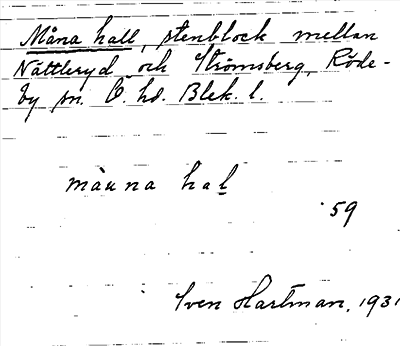 Måna hall, stenblock mellan
Nättleryd och Strömsberg, Röde-
by sn. Ö. hd. Blek. l.
måuna hal
59
Sven Hartman, 1931